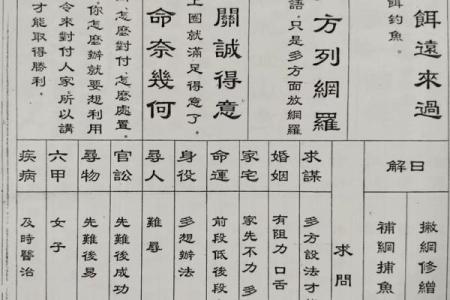 餌遠來過
餌釣魚。
方列網羅
語，只是多方面放網羅
關誠得意
上圈就滿足得意了。
命奈幾何
怎麼對付，怎麼處置。
你怎麼辦就要想利用
令來對付人家，所以講
才能取得勝利。
日解
撇網修繒
補網捕魚
求問
求謀 多方設法才
婚姻 有阻力 口舌
家宅 家先不力 多
命運 前段低後段
身役 多想辦法
尋人 難尋
官訟 先難後成功
尋物 先難後易
六甲 女子
疾病 及時醫治